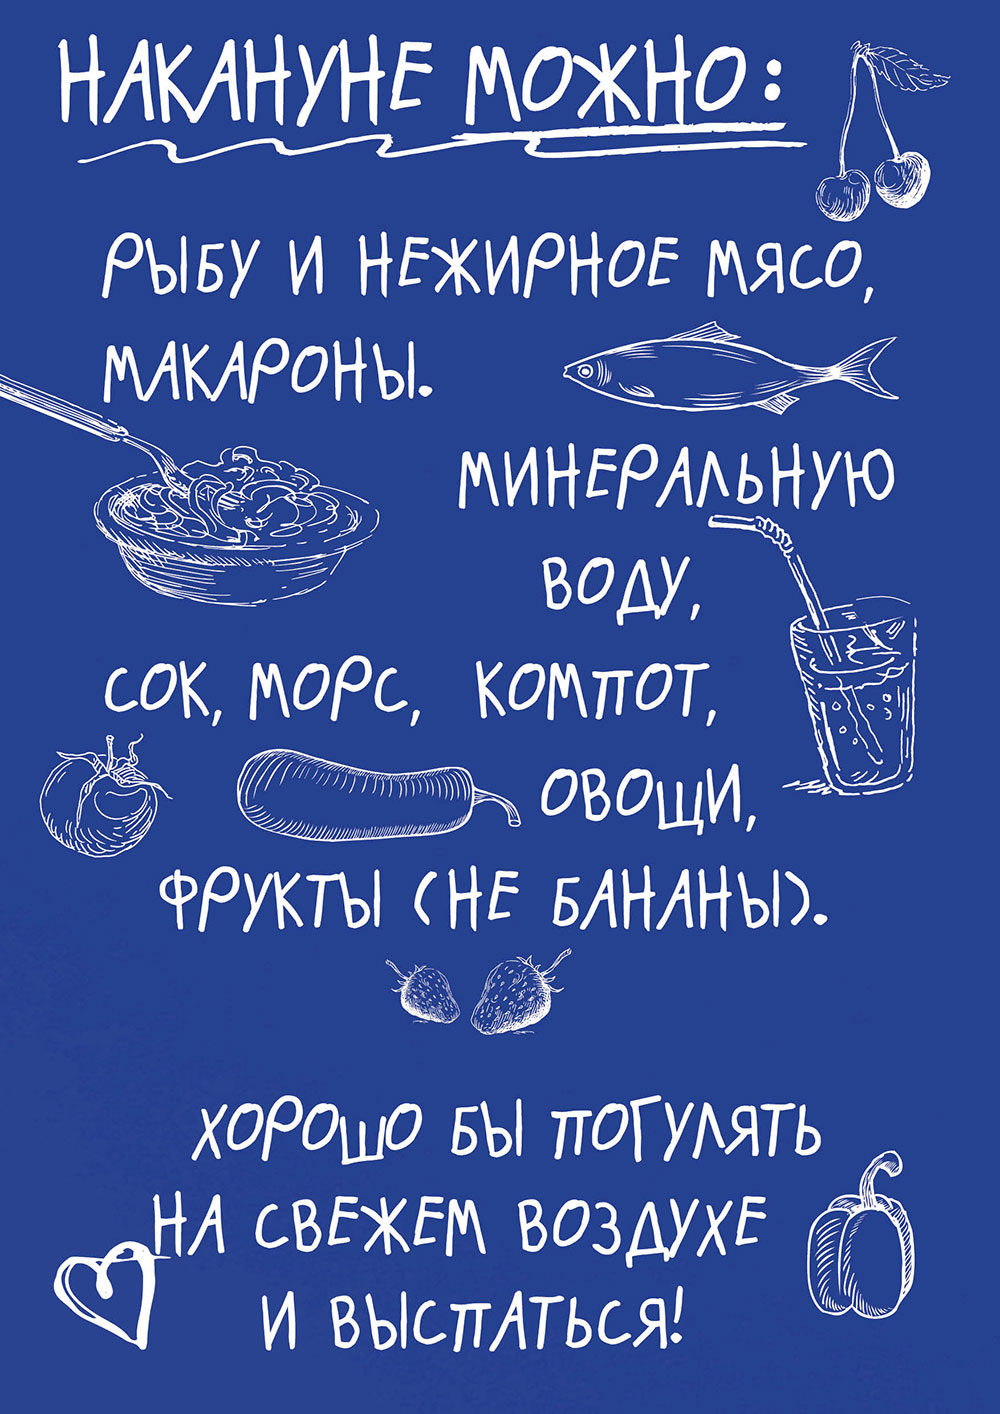 НАКАНУНЕ МОЖНО:
РЫБУ И НЕЖИРНОЕ МЯСО,
МАКАРОНЫ.
МИНЕРАЛЬНУЮ
ВОДУ,
СОК, МОРС, КОМПОТ,
ОВОЩИ,
ФРУКТЫ (НЕ БАНАНЫ).
ХОРОШО БЫ ПОГУЛЯТЬ
НА СВЕЖЕМ ВОЗДУХЕ
И ВЫСПАТЬСЯ!